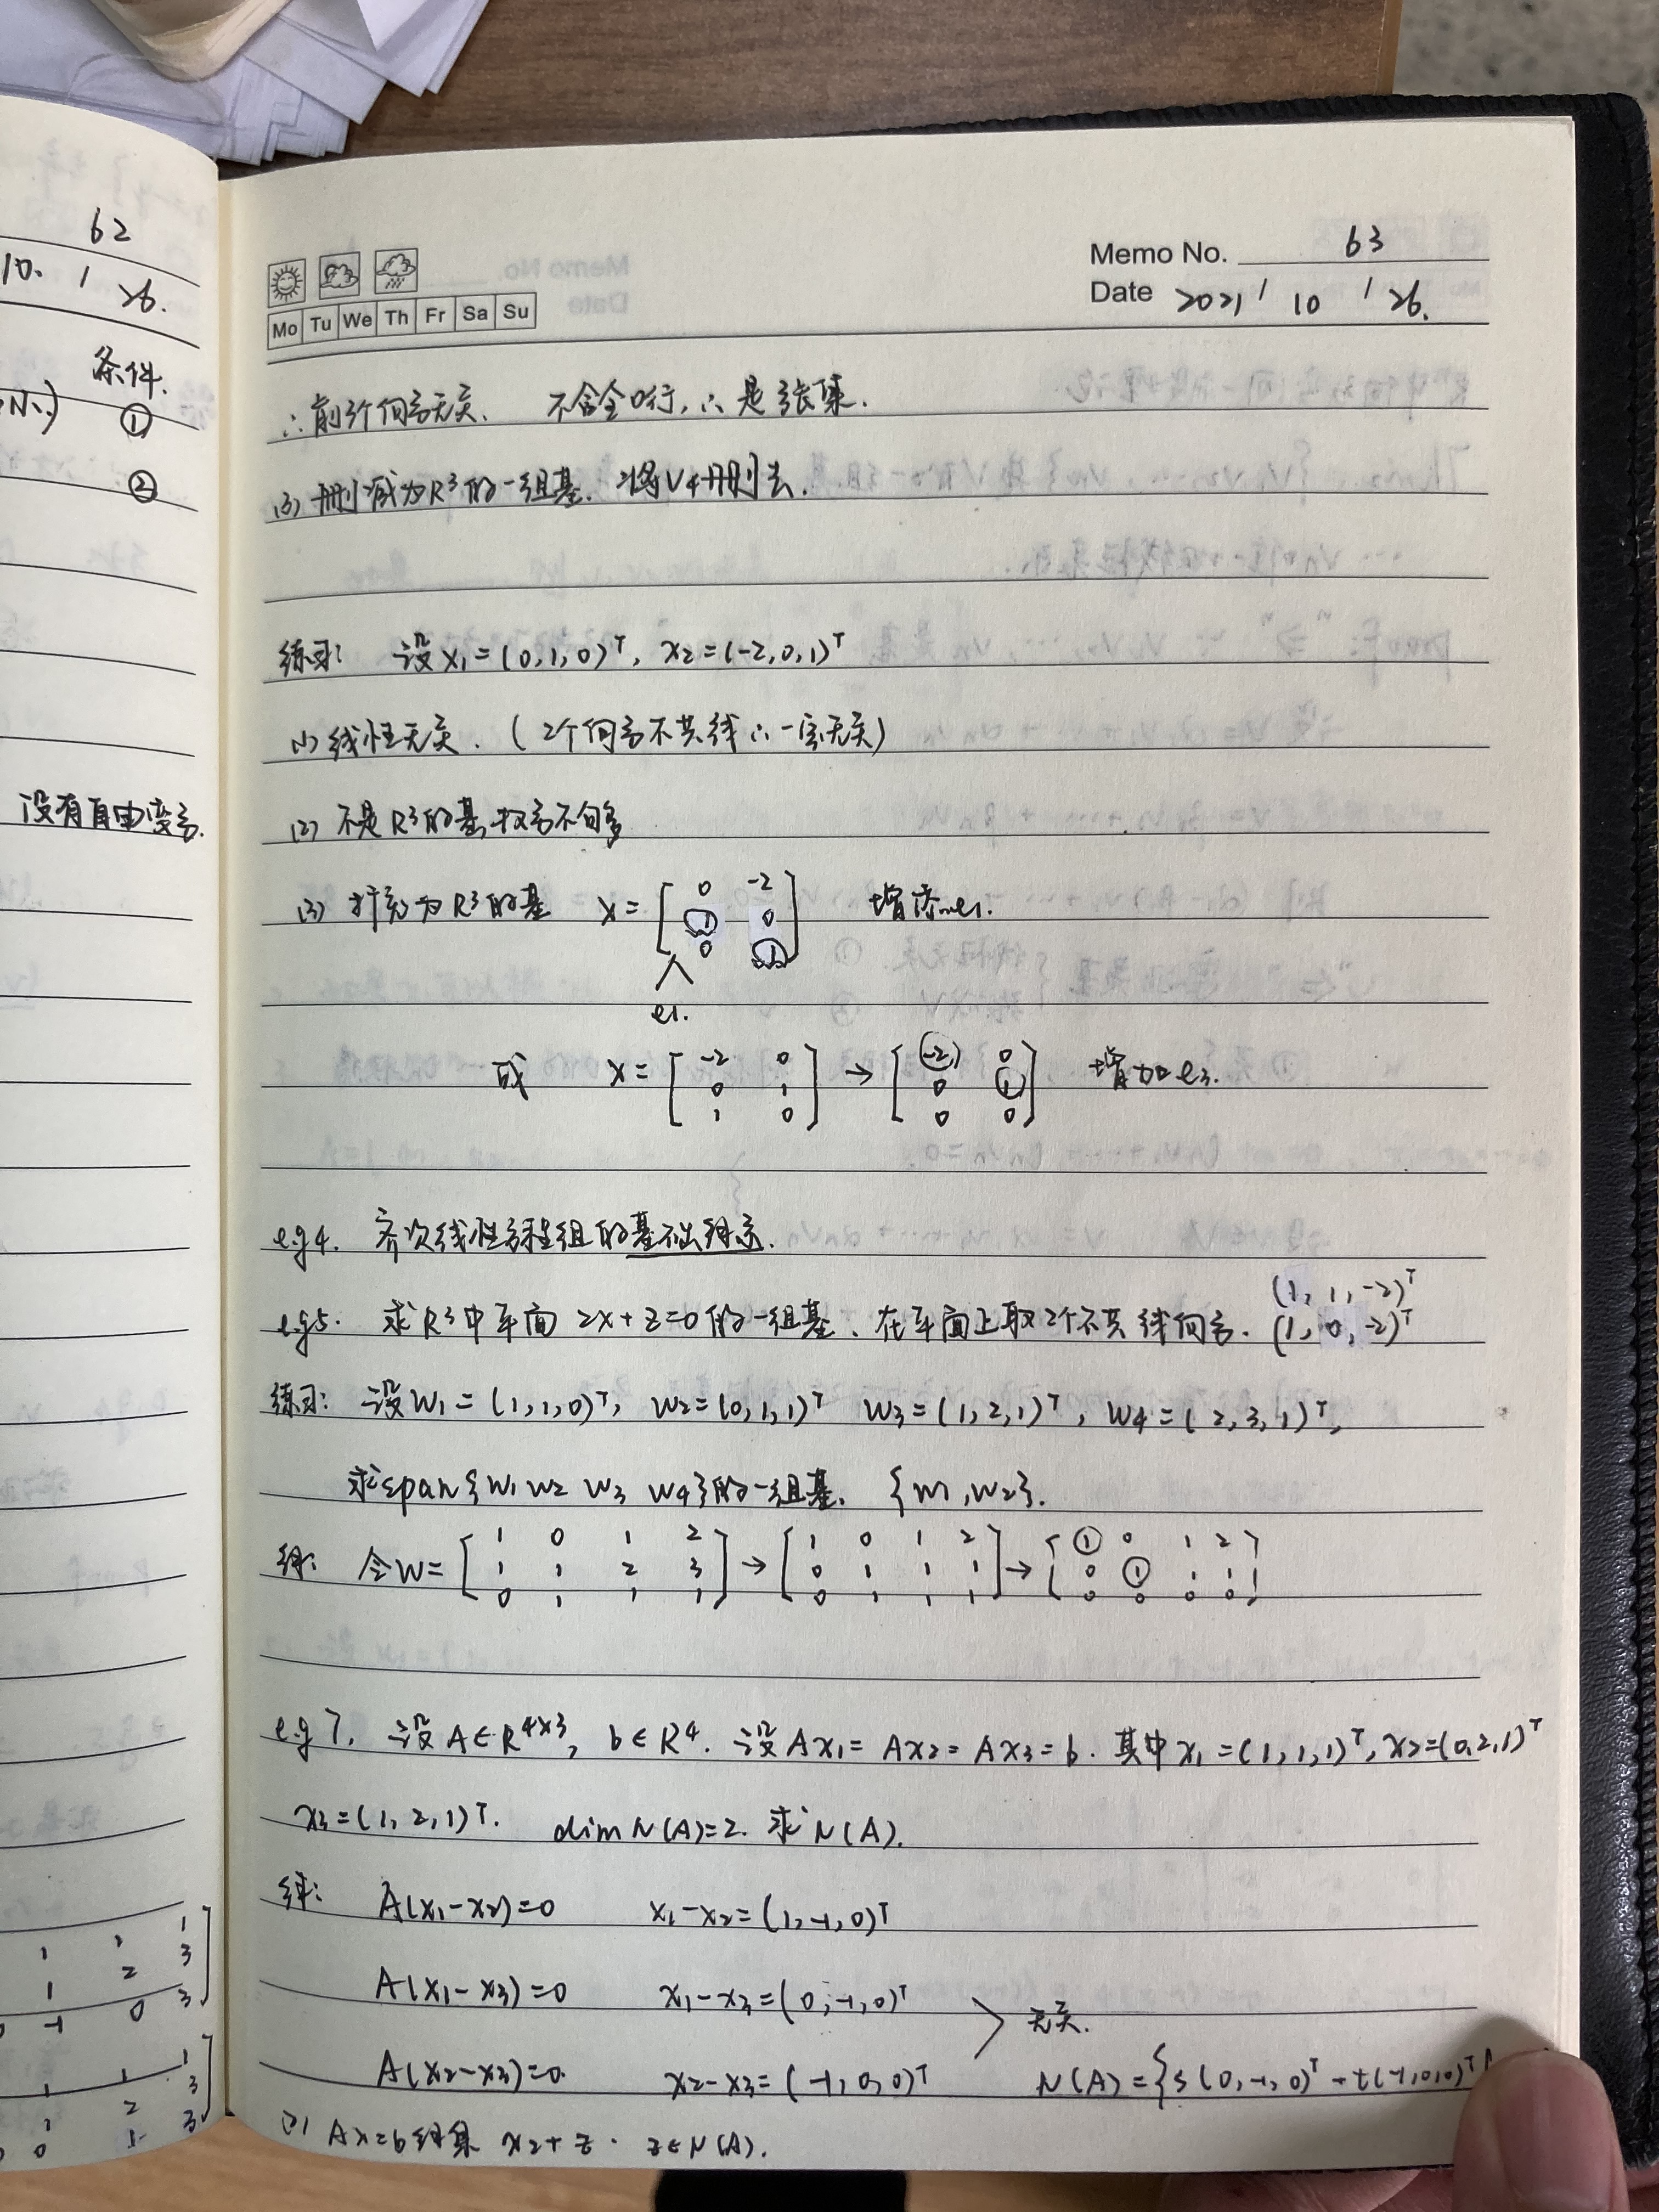 62
10. / 26.
条件.
①
②
没有自由变高.
1
1 1 3
1 2 3
0 -1 0
1
1 1 3
1 2 3
0 0 1
Memo No. 63
Date 2021 / 10 / 26.
Mo Tu We Th Fr Sa Su
∴前3个向高无关. 不含全0行, ∴是张集.
(3) 删减为R³的一组基. 将V4删去.
练习: 设x₁=(0,1,0)ᵀ, x₂=(-2,0,1)ᵀ
(1) 线性无关. (2个向高不共线∴一定无关)
(2) 不是R³的基 极高不够多
(3) 扩充为R³的基 X = [0 -2; 1 0; 0 1] 增添e₁.
e₁.
或 X = [-2 0; 0 1; 1 0] → [-2 0; 0 1; 0 0] 增加e₃.
e.g4. 齐次线性方程组的基础解系.
(1, 1, -2)ᵀ
e.g5. 求R³中平面 2x+z=0的一组基. 在平面上取2个不共线向高. (1, 0, -2)ᵀ
练习: 设W₁=(1,1,0)ᵀ, W₂=(0,1,1)ᵀ W₃=(1,2,1)ᵀ, W₄=(2,3,1)ᵀ,
求span{W₁ W₂ W₃ W₄}的一组基. {W₁,W₂}.
解: 令W = [1 0 1 2; 1 1 2 3; 0 1 1 1] → [1 0 1 2; 0 1 1 1; 0 1 1 1] → [1 0 1 2; 0 1 1 1; 0 0 0 0]
e.g 7. 设A∈R⁴ˣ³, b∈R⁴. 设Ax₁=Ax₂=Ax₃=b. 其中x₁=(1,1,1)ᵀ, x₂=(0,2,1)ᵀ
x₃=(1,2,1)ᵀ. dim N(A)=2. 求N(A).
解: A(x₁-x₂)=0 x₁-x₂=(1,-1,0)ᵀ
A(x₁-x₃)=0 x₁-x₃=(0,-1,0)ᵀ
无关.
A(x₂-x₃)=0. x₂-x₃=(-1,0,0)ᵀ N(A)={s(0,-1,0)ᵀ+t(-1,0,0)ᵀ
(2) Ax=b解集 x₂+z. z∈N(A).